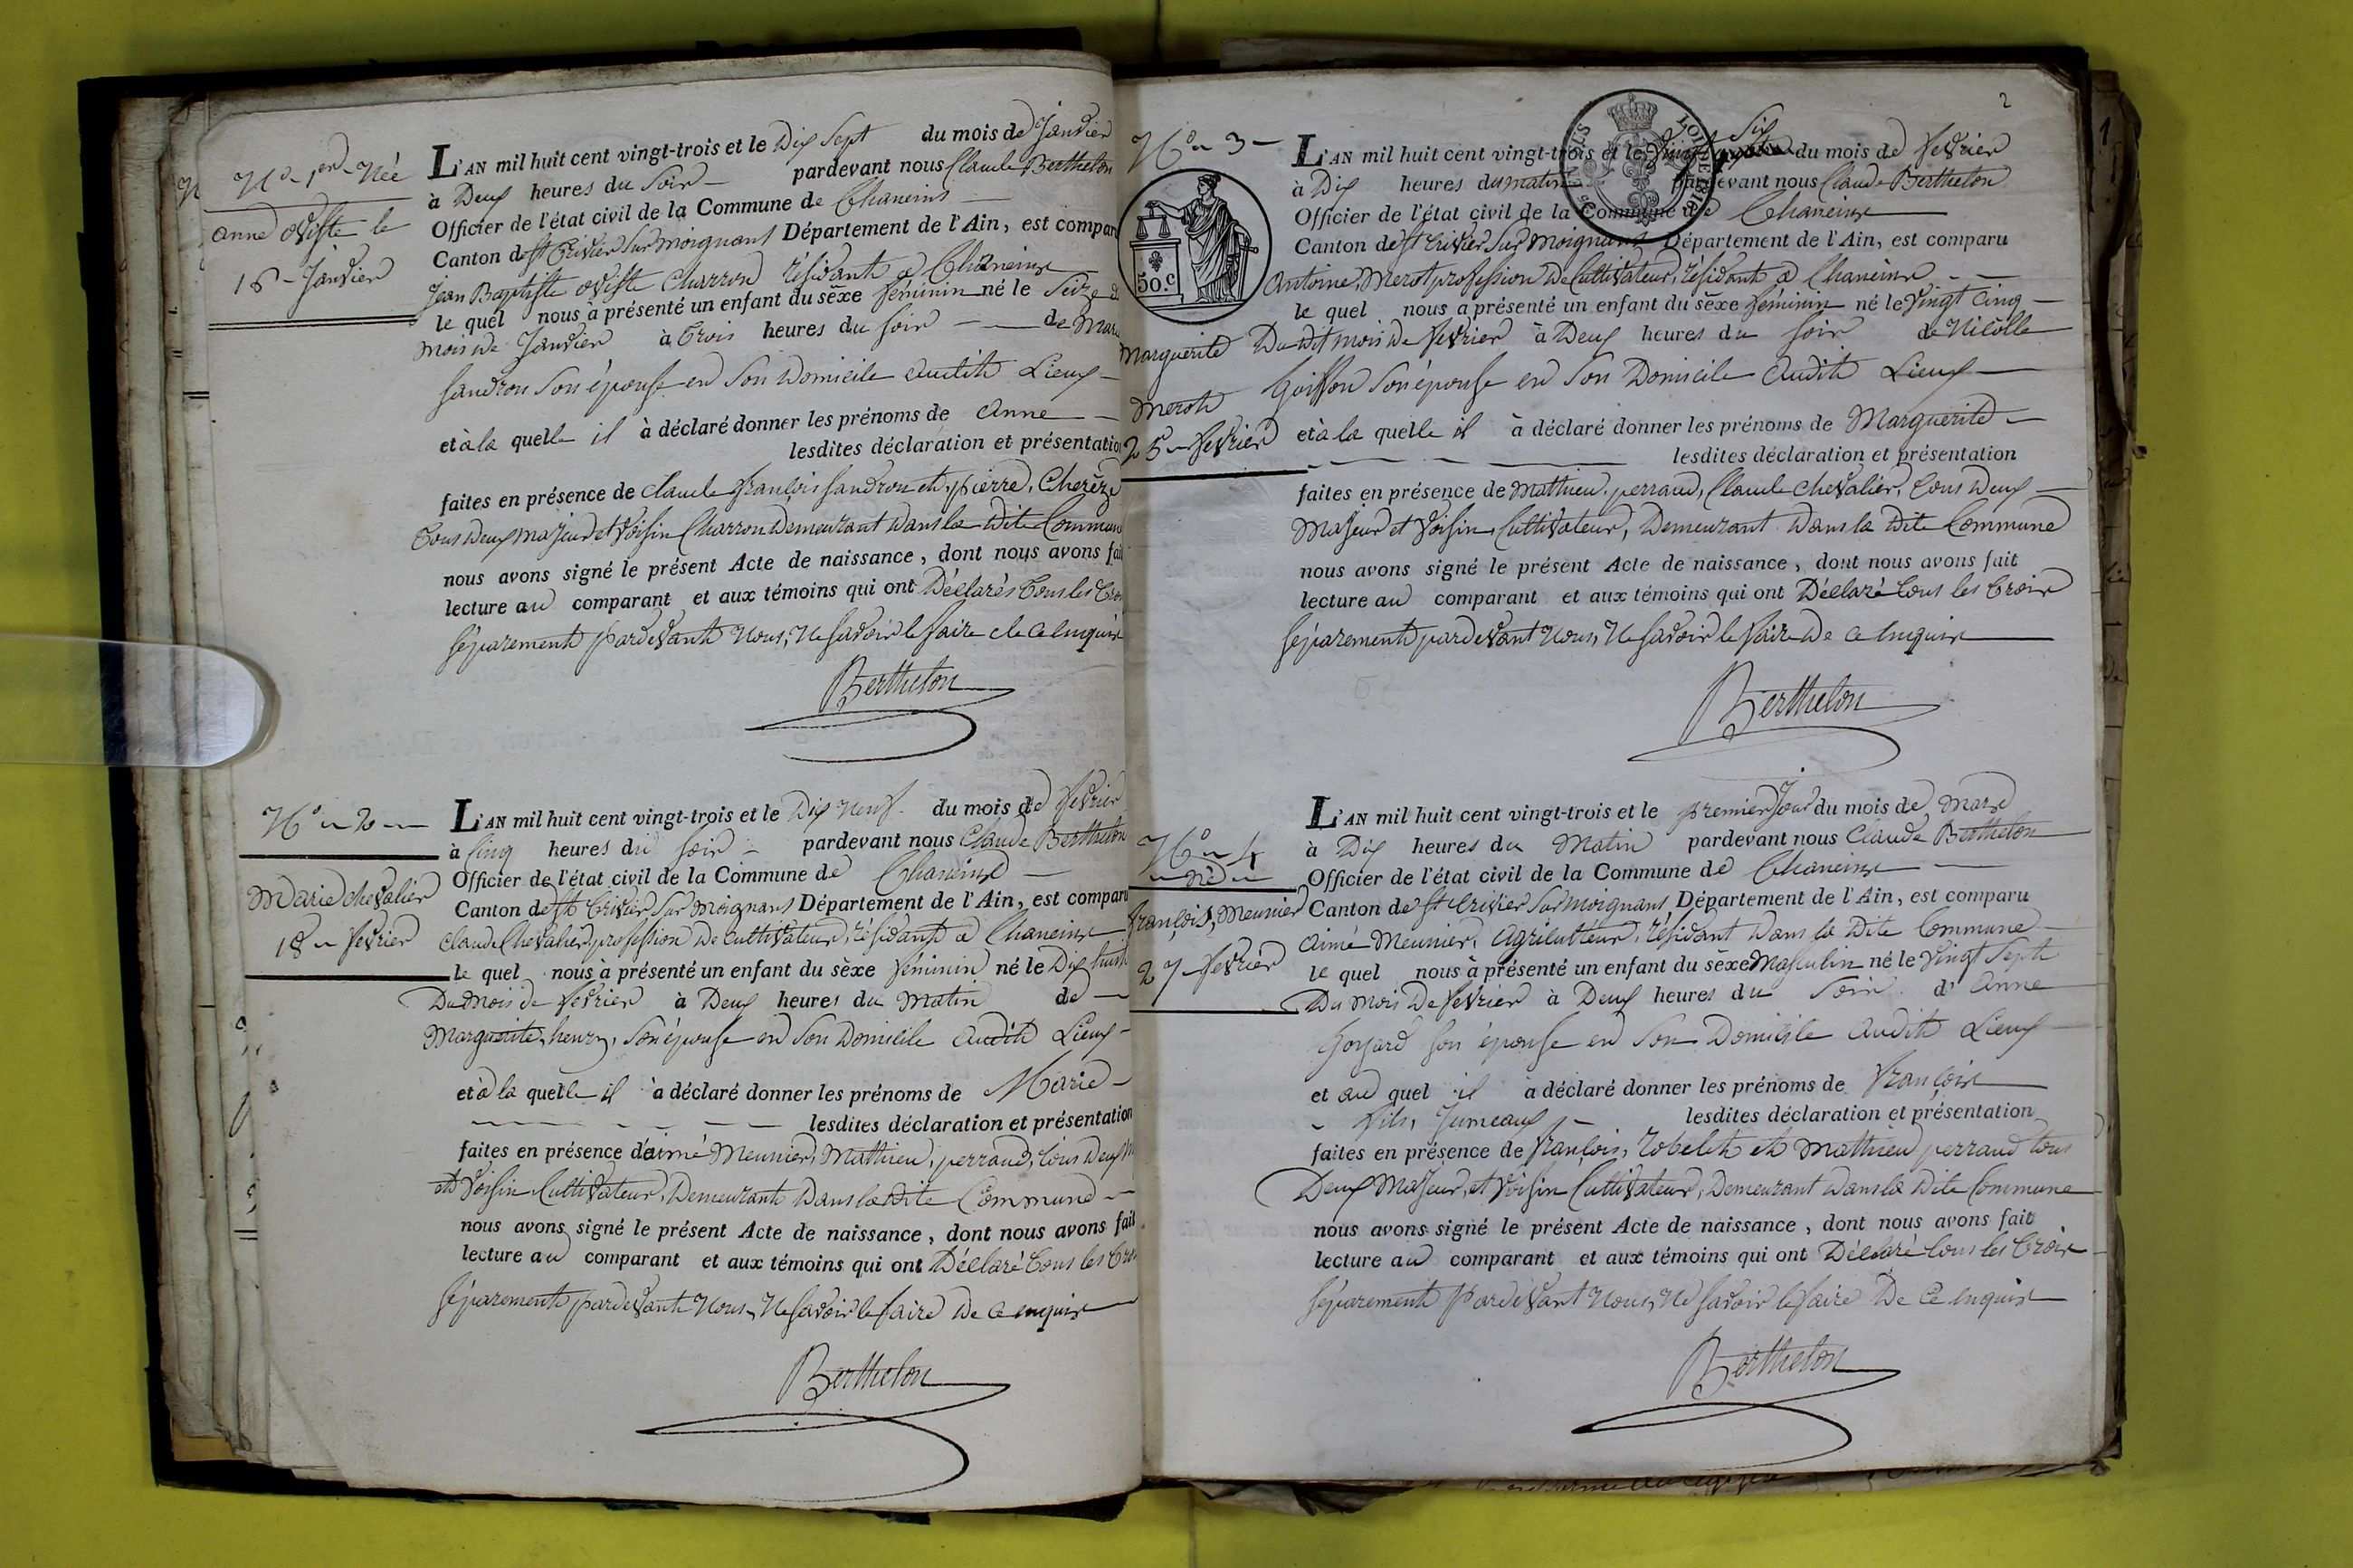 No 1er Née
Anne oviste le
16 Janvier
L'AN mil huit cent vingt-trois et le Dix Sept du mois de Janvier
à Deux heures du Soir pardevant nous Claude Berthelon
Officier de l'état civil de la Commune de Chaneins
Canton de St Trivier Sur Moignans Département de l'Ain, est compar
Jean Baptiste oviste Charron résidant a Chaneins
le quel nous à présenté un enfant du sèxe féminin né le Seize
mois de Janvier à trois heures du soir de Mar
Sandron Son épouse en Son Domicile audit Lieux
et à la quelle il à déclaré donner les prénoms de Anne
lesdites déclaration et présentation
faites en présence de Claude françois Sandron et pierre,
tous Deux majeur et Voisin Charron Demeurant Dans la Dite Commune
nous avons signé le présent Acte de naissance, dont nous avons fait
lecture au comparant et aux témoins qui ont Déclarés tous les tro
séparement pardevant Nous, Ne Savoir le faire de ce enquis
Berthelon
No 2
Marie chevalier
18 fevrier
L'AN mil huit cent vingt-trois et le Dix Neuf du mois de fevrier
à Cinq heures du soir pardevant nous Claude Berthelon
Officier de l'état civil de la Commune de Chaneins
Canton de St Trivier Sur Moignans Département de l'Ain, est comparu
Claude Chevalier profession De Cultivateur, résidant a Chaneins
le quel nous à présenté un enfant du sèxe féminin né le Dix huit
Du Mois de fevrier à Deux heures du Matin de
Marguerite, henry, Son épouse en Son Domicile Audit Lieux
et à la quelle il à déclaré donner les prénoms de Marie
lesdites déclaration et présentation
faites en présence d'aimé Meunier, Mathieu, perraud, tous Deux
et Voisin Cultivateur, Demeurant Dans la Dite Commune
nous avons signé le présent Acte de naissance, dont nous avons fait
lecture au comparant et aux témoins qui ont Déclaré tous les tro
séparement pardevant Nous, Ne Savoir le faire De ce enquis
Berthelon
2
No 3
50. c
LOI DE 1816
Marguerite
Merot
25 fevrier
L'AN mil huit cent vingt-trois et le Vingt Six du mois de fevrier
à Dix heures du matin pardevant nous Claude Berthelon
Officier de l'état civil de la Commune de Chaneins
Canton de St Trivier Sur Moignans Département de l'Ain, est comparu
Antoine, Merot profession De Cultivateur, résidant a Chaneins
le quel nous a présenté un enfant du sèxe féminin né le Vingt Cinq
Dudit mois De fevrier à Deux heures du soir de Nicolle
Goiffon Son épouse en Son Domicile Audit Lieux
et à la quelle il à déclaré donner les prénoms de Marguerite
lesdites déclaration et présentation
faites en présence de Mathieu, perraud, Claude Chevalier, tous Deux
Majeur et Voisin, Cultivateur, Demeurant Dans la Dite Commune
nous avons signé le présent Acte de naissance, dont nous avons fait
lecture au comparant et aux témoins qui ont Déclaré tous les trois
séparement pardevant Nous, Ne Savoir le faire De ce enquis
Berthelon
No 4
né
françois, Meunier
27 fevrier
L'AN mil huit cent vingt-trois et le premier Jour du mois de Mars
à Dix heures du Matin pardevant nous Claude Berthelon
Officier de l'état civil de la Commune de Chaneins
Canton de St Trivier Sur Moignans Département de l'Ain, est comparu
Aimé Meunier, Agriculteur, résidant Dans la Dite Commune
le quel nous à présenté un enfant du sèxe Masculin né le Vingt Sept
Du Mois De fevrier à Deux heures du Soir d' Anne
Goyard Son épouse en Son Domicile Audit Lieux
et au quel il a déclaré donner les prénoms de françois
fils, Jumeaux lesdites déclaration et présentation
faites en présence de françois, robelet et Mathieu perraud tous
Deux Majeur, et Voisin Cultivateur, Demeurant Dans la Dite Commune
nous avons signé le présent Acte de naissance, dont nous avons fait
lecture au comparant et aux témoins qui ont Déclaré tous les trois
séparement pardevant Nous, Ne Savoir le faire De Ce enquis
Berthelon